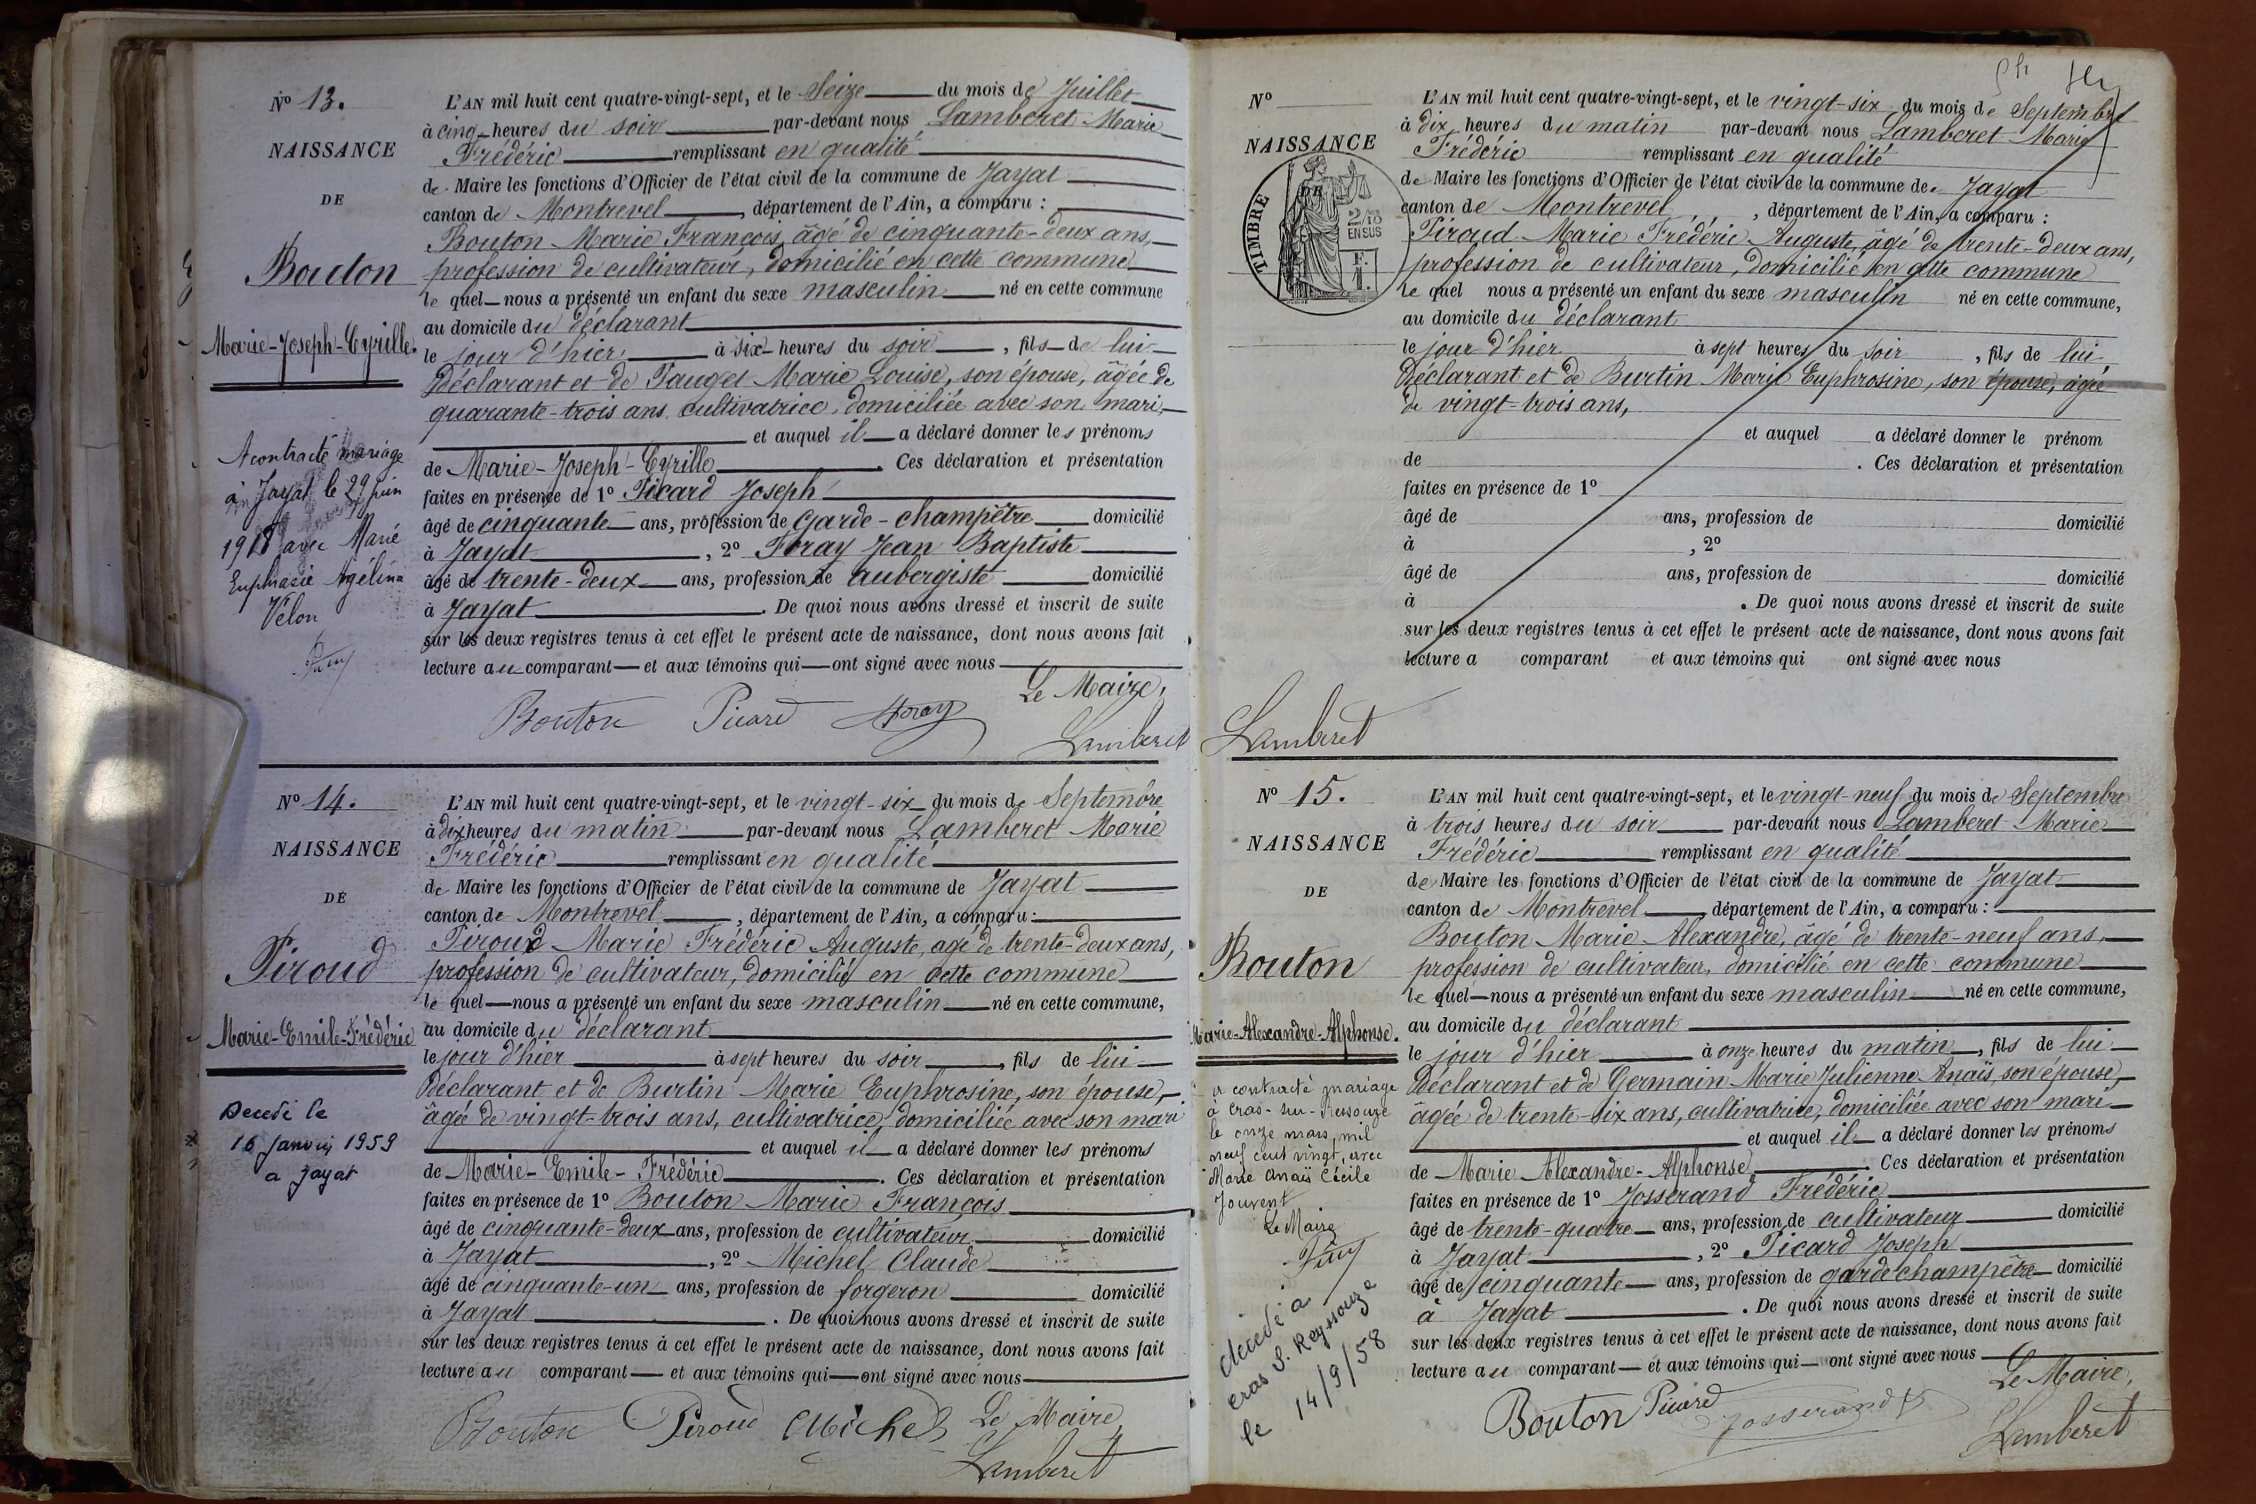 Nº 13.
NAISSANCE
DE
Bouton
Marie-Joseph-Cyrille.
A contracté mariage
à Jayat le 29 juin
1918 avec Marie
Euphrasie Angélina
Vélon
L'AN mil huit cent quatre-vingt-sept, et le Seize du mois de Juillet
à cinq heures du soir par-devant nous Lamberet Marie
Frédéric remplissant en qualité
de Maire les fonctions d'Officier de l'état civil de la commune de Jayat
canton de Montrevel, département de l'Ain, a comparu :
Bouton Marie François, âgé de cinquante-deux ans,
profession de cultivateur, domicilié en cette commune
le quel nous a présenté un enfant du sexe masculin né en cette commune
au domicile du déclarant
le jour d'hier à six heures du soir, fils de lui
déclarant et de Fauget Marie Louise, son épouse, âgée de
quarante-trois ans, cultivatrice, domiciliée avec son mari
et auquel il a déclaré donner les prénoms
de Marie-Joseph-Cyrille. Ces déclaration et présentation
faites en présence de 1º Picard Joseph
âgé de cinquante ans, profession de Garde-champêtre domicilié
à Jayat, 2º Foray Jean Baptiste
âgé de trente-deux ans, profession de aubergiste domicilié
à Jayat. De quoi nous avons dressé et inscrit de suite
sur les deux registres tenus à cet effet le présent acte de naissance, dont nous avons fait
lecture au comparant et aux témoins qui ont signé avec nous
Le Maire,
Bouton Picard Foray
Lamberet
Nº 14.
NAISSANCE
DE
Piroud
Marie-Emile-Frédéric
Decedé le
16 Janvier 1959
a Jayat
L'AN mil huit cent quatre-vingt-sept, et le vingt-six du mois de Septembre
à dix heures du matin par-devant nous Lamberet Marie
Frédéric remplissant en qualité
de Maire les fonctions d'Officier de l'état civil de la commune de Jayat
canton de Montrevel, département de l'Ain, a comparu :
Piroud Marie Frédéric Auguste, âgé de trente-deux ans,
profession de cultivateur, domicilié en cette commune
le quel nous a présenté un enfant du sexe masculin né en cette commune,
au domicile du déclarant
le jour d'hier à sept heures du soir, fils de lui
déclarant et de Burtin Marie Euphrosine, son épouse,
âgée de vingt-trois ans, cultivatrice, domiciliée avec son mari
et auquel il a déclaré donner les prénoms
de Marie-Emile-Frédéric. Ces déclaration et présentation
faites en présence de 1º Bouton Marie François
âgé de cinquante-deux ans, profession de cultivateur domicilié
à Jayat, 2º Michel Claude
âgé de cinquante-un ans, profession de forgeron domicilié
à Jayat. De quoi nous avons dressé et inscrit de suite
sur les deux registres tenus à cet effet le présent acte de naissance, dont nous avons fait
lecture au comparant et aux témoins qui ont signé avec nous
Bouton Piroud Michel Le Maire
Lamberet
Nº
NAISSANCE
DE
TIMBRE
2/10
EN SUS
F.
1.
L'AN mil huit cent quatre-vingt-sept, et le vingt-six du mois de Septembre
à dix heures du matin par-devant nous Lamberet Marie
Frédéric remplissant en qualité
de Maire les fonctions d'Officier de l'état civil de la commune de Jayat
canton de Montrevel, département de l'Ain, a comparu :
Piroud Marie Frédéric Auguste, âgé de trente-deux ans,
profession de cultivateur, domicilié en cette commune
le quel nous a présenté un enfant du sexe masculin né en cette commune,
au domicile du déclarant
le jour d'hier à sept heures du soir, fils de lui
déclarant et de Burtin Marie Euphrosine, son épouse, âgée
de vingt-trois ans,
et auquel a déclaré donner le prénom
de . Ces déclaration et présentation
faites en présence de 1º
âgé de ans, profession de domicilié
à , 2º
âgé de ans, profession de domicilié
à . De quoi nous avons dressé et inscrit de suite
sur les deux registres tenus à cet effet le présent acte de naissance, dont nous avons fait
lecture a comparant et aux témoins qui ont signé avec nous
Lamberet
Nº 15.
NAISSANCE
DE
Bouton
Marie-Alexandre-Alphonse.
a contracté mariage
à Cras-sur-Ressouze
le onze mars mil
neuf cent vingt, avec
Marie Anaïs Cécile
Jouvent
Le Maire
décédé à
Cras S. Reyssouze
le 14/9/58
L'AN mil huit cent quatre-vingt-sept, et le vingt-neuf du mois de Septembre
à trois heures du soir par-devant nous Lamberet Marie
Frédéric remplissant en qualité
de Maire les fonctions d'Officier de l'état civil de la commune de Jayat
canton de Montrevel, département de l'Ain, a comparu :
Bouton Marie Alexandre, âgé de trente-neuf ans,
profession de cultivateur, domicilié en cette commune
le quel nous a présenté un enfant du sexe masculin né en cette commune,
au domicile du déclarant
le jour d'hier à onze heures du matin, fils de lui
déclarant et de Germain Marie Julienne Anaïs, son épouse,
âgée de trente-six ans, cultivatrice, domiciliée avec son mari
et auquel il a déclaré donner les prénoms
de Marie Alexandre-Alphonse. Ces déclaration et présentation
faites en présence de 1º Josserand Frédéric
âgé de trente-quatre ans, profession de cultivateur domicilié
à Jayat, 2º Picard Joseph
âgé de cinquante ans, profession de garde champêtre domicilié
à Jayat. De quoi nous avons dressé et inscrit de suite
sur les deux registres tenus à cet effet le présent acte de naissance, dont nous avons fait
lecture au comparant et aux témoins qui ont signé avec nous
Le Maire,
Bouton Picard Josserand
Lamberet